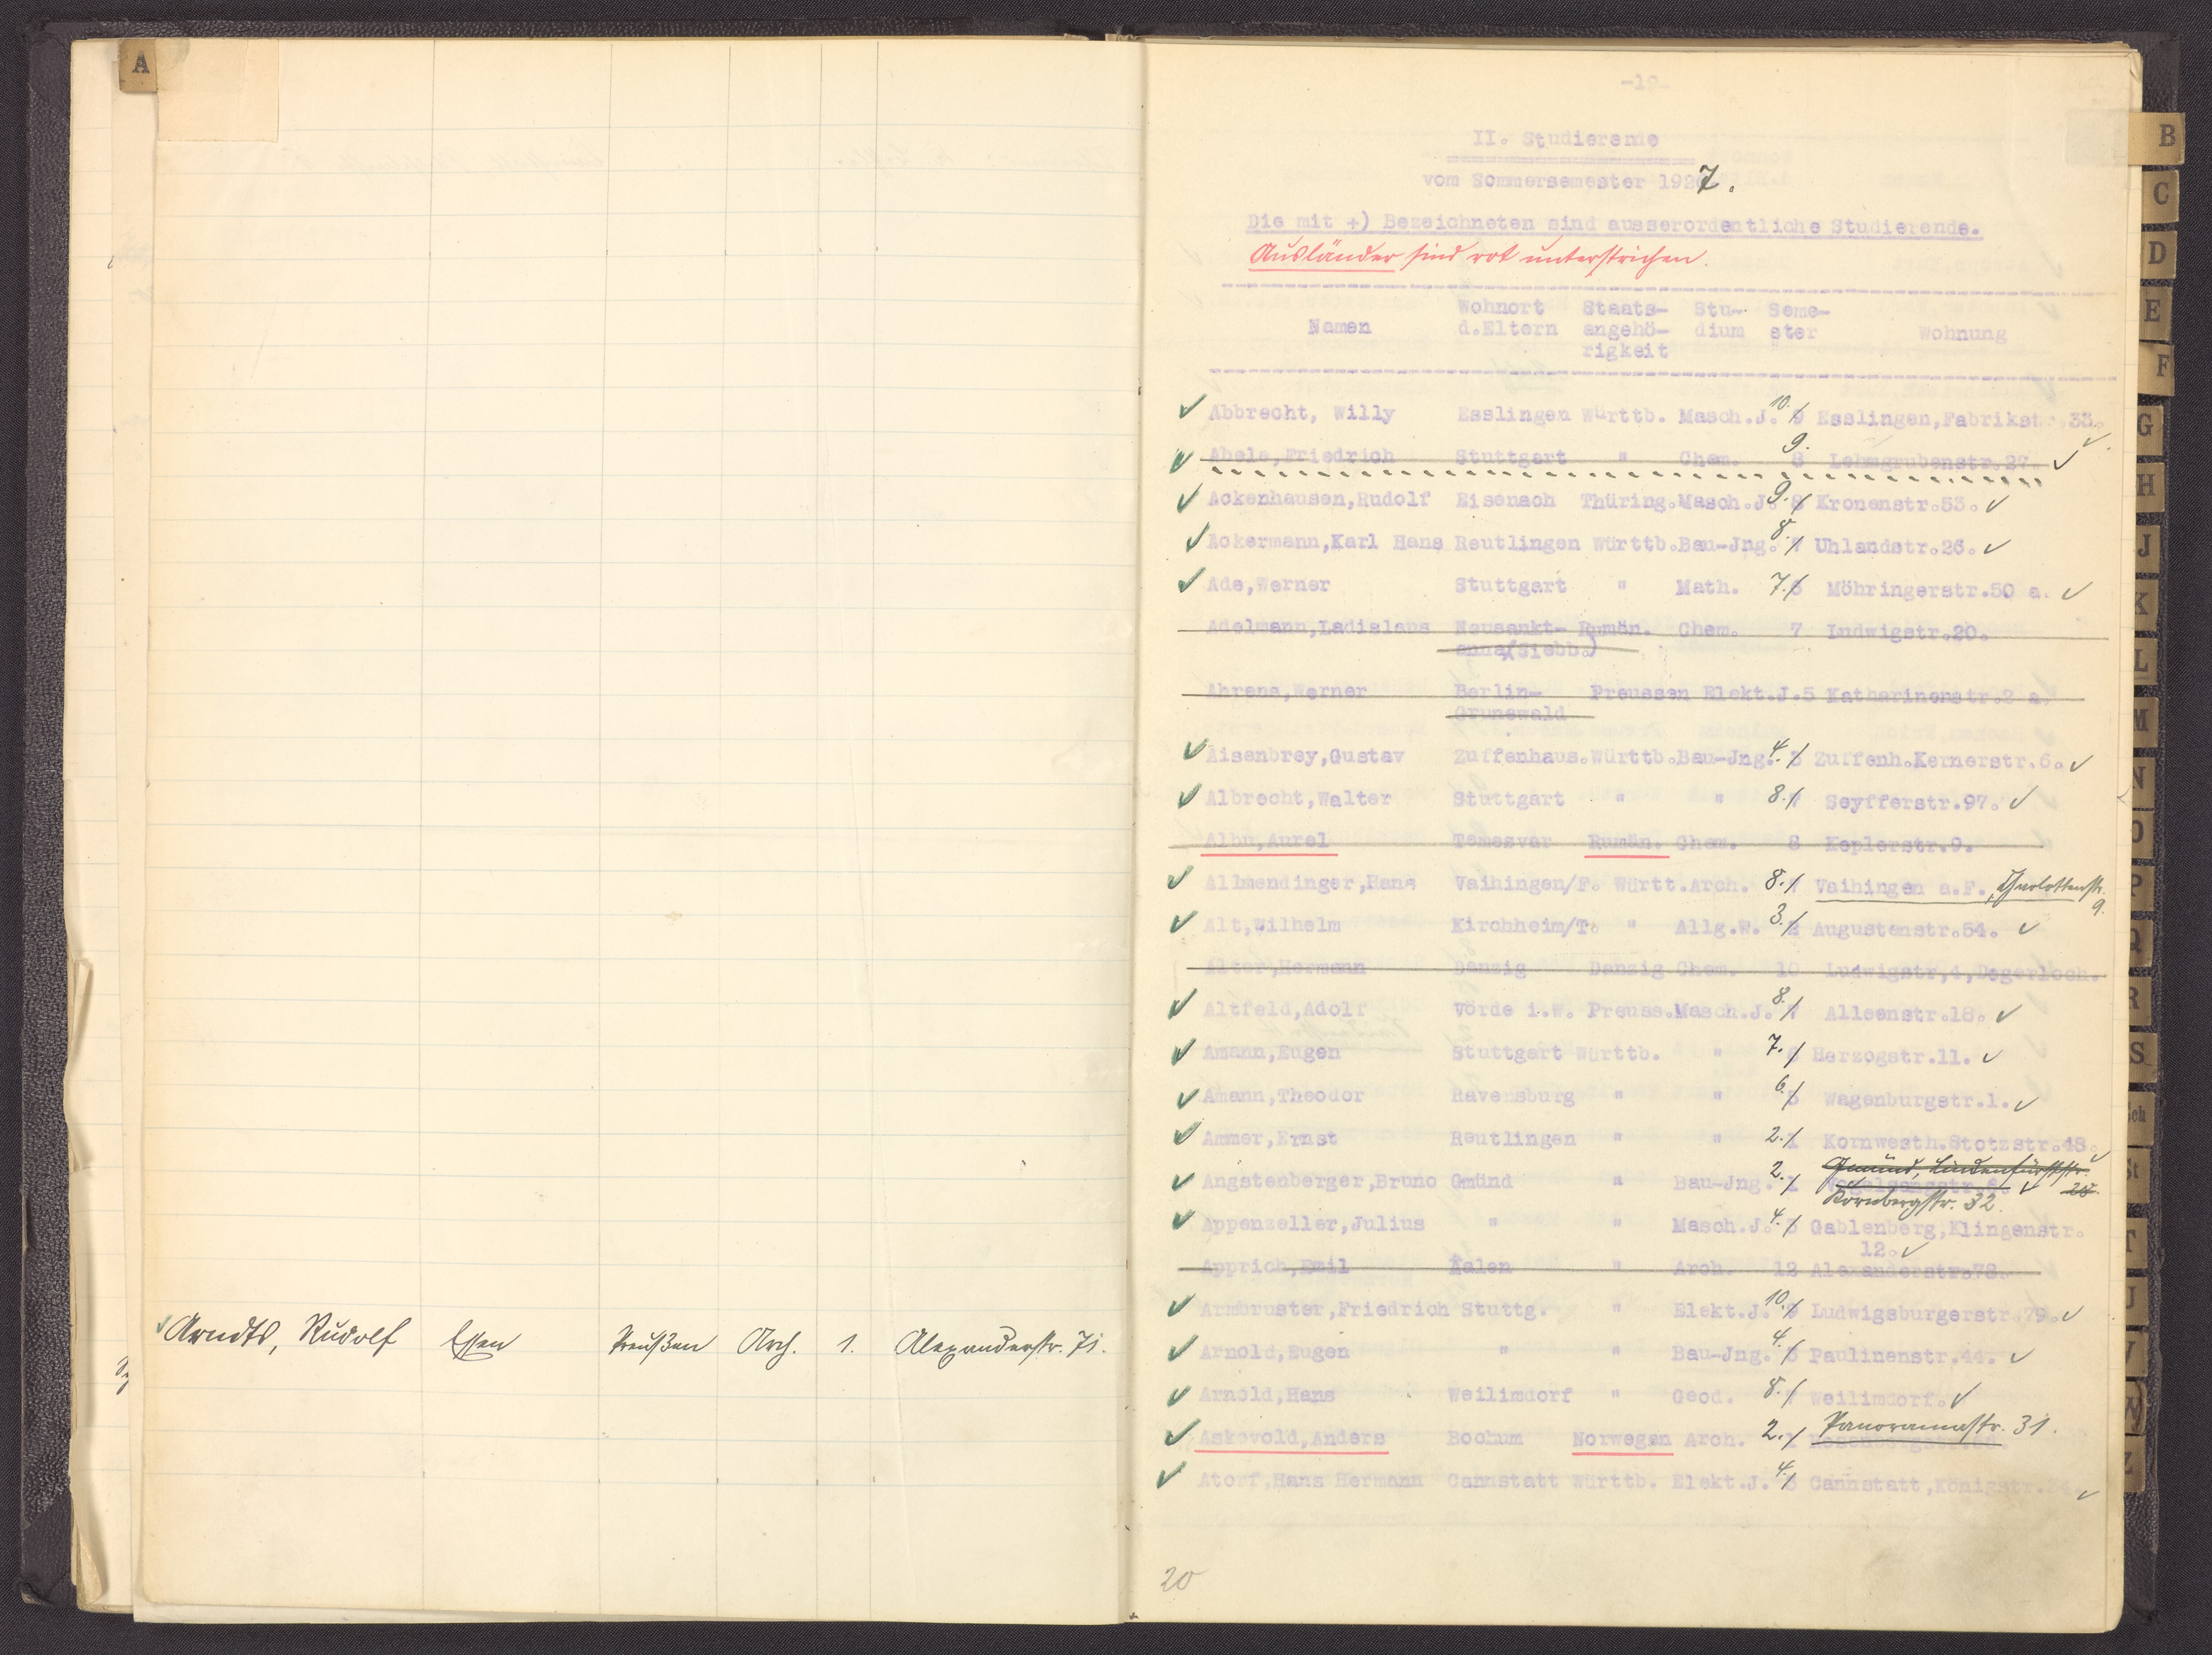 A
Arndts, Rudolf Essen Preußen Arch. 1. Alexanderstr. 71.
-19-
II. Studierende
vom Sommersemester 1927.
Die mit +) Bezeichneten sind ausserordentliche Studierende.
Ausländer sind rot unterstrichen.
Namen Wohnort d.Eltern Staats-angehö-rigkeit Stu-dium Seme-ster Wohnung
Abbrecht, Willy Esslingen Württb. Masch.J. 10. 9 Esslingen,Fabrikstr.33.
Abele,Friedrich Stuttgart " Chem. 9. 8 Lehmgrubenstr.27.
Ackenhausen,Rudolf Eisenach Thüring.Masch.J. 9. 8 Kronenstr.53.
Ackermann,Karl Hans Reutlingen Württb.Bau-Jng. 8. 7 Uhlandstr.26.
Ade,Werner Stuttgart " Math. 7. 6 Möhringerstr.50 a.
Adelmann,Ladislaus Neusankt- Rumän. Chem. 7 Ludwigstr.20.
anna(Siebb.)
Ahrens,Werner Berlin- Preussen Elekt.J.5 Katharinenstr.2 a.
Grunewald
Aisenbrey,Gustav Zuffenhaus.Württb.Bau-Jng. 4. 3 Zuffenh.Kernerstr.6.
Albrecht,Walter Stuttgart " " 8. Seyfferstr.97.
Albu,Aurel Temesvar Rumän. Chem. 8 Keplerstr.9.
Allmendinger,Hans Vaihingen/F. Württ.Arch. 8. Vaihingen a.F., Charlottenstr.
9.
Alt,Wilhelm Kirchheim/T. " Allg.W. 3. 2 Augustenstr.54.
Alter,Hermann Danzig Danzig Chem. 10 Ludwigstr,4,Degerloch.
Altfeld,Adolf Vörde i.W. Preuss.Masch.J. 8. Alleenstr.18.
Amann,Eugen Stuttgart Württb. " 7. Herzogstr.11.
Amann,Theodor Ravensburg " " 6. 5 Wagenburgstr.1.
Ammer,Ernst Reutlingen " " 2. 1 Kornwesth.Stotzstr.48.
Gmünd, Lindenfürststr.
Angstenberger,Bruno Gmünd " Bau-Jng. 2. 1 Vogelsangstr.
Kornbergstr. 32.
Appenzeller,Julius " " Masch.J. 4. 3 Gablenberg,Klingenstr.
12.
Apprich,Emil Aalen " Arch. 12 Alexanderstr.78.
Armbruster,Friedrich Stuttg. " Elekt.J. 10. 9 Ludwigsburgerstr.79.
Arnold,Eugen " " Bau-Jng. 4. 3 Paulinenstr.44.
Arnold,Hans Weilimdorf " Geod. 8. 7 Weilimdorf.
Askevold,Anders Bochum Norwegen Arch. 2. 1 Panoramastr. 31.
Atorf,Hans Hermann Cannstatt Württb. Elekt.J. 4. 3 Cannstatt,Königstr.
20
B
C
D
E
F
G
H
J
K
L
M
N
O
P
Q
R
S
Sch
St
T
U
V
W
Z